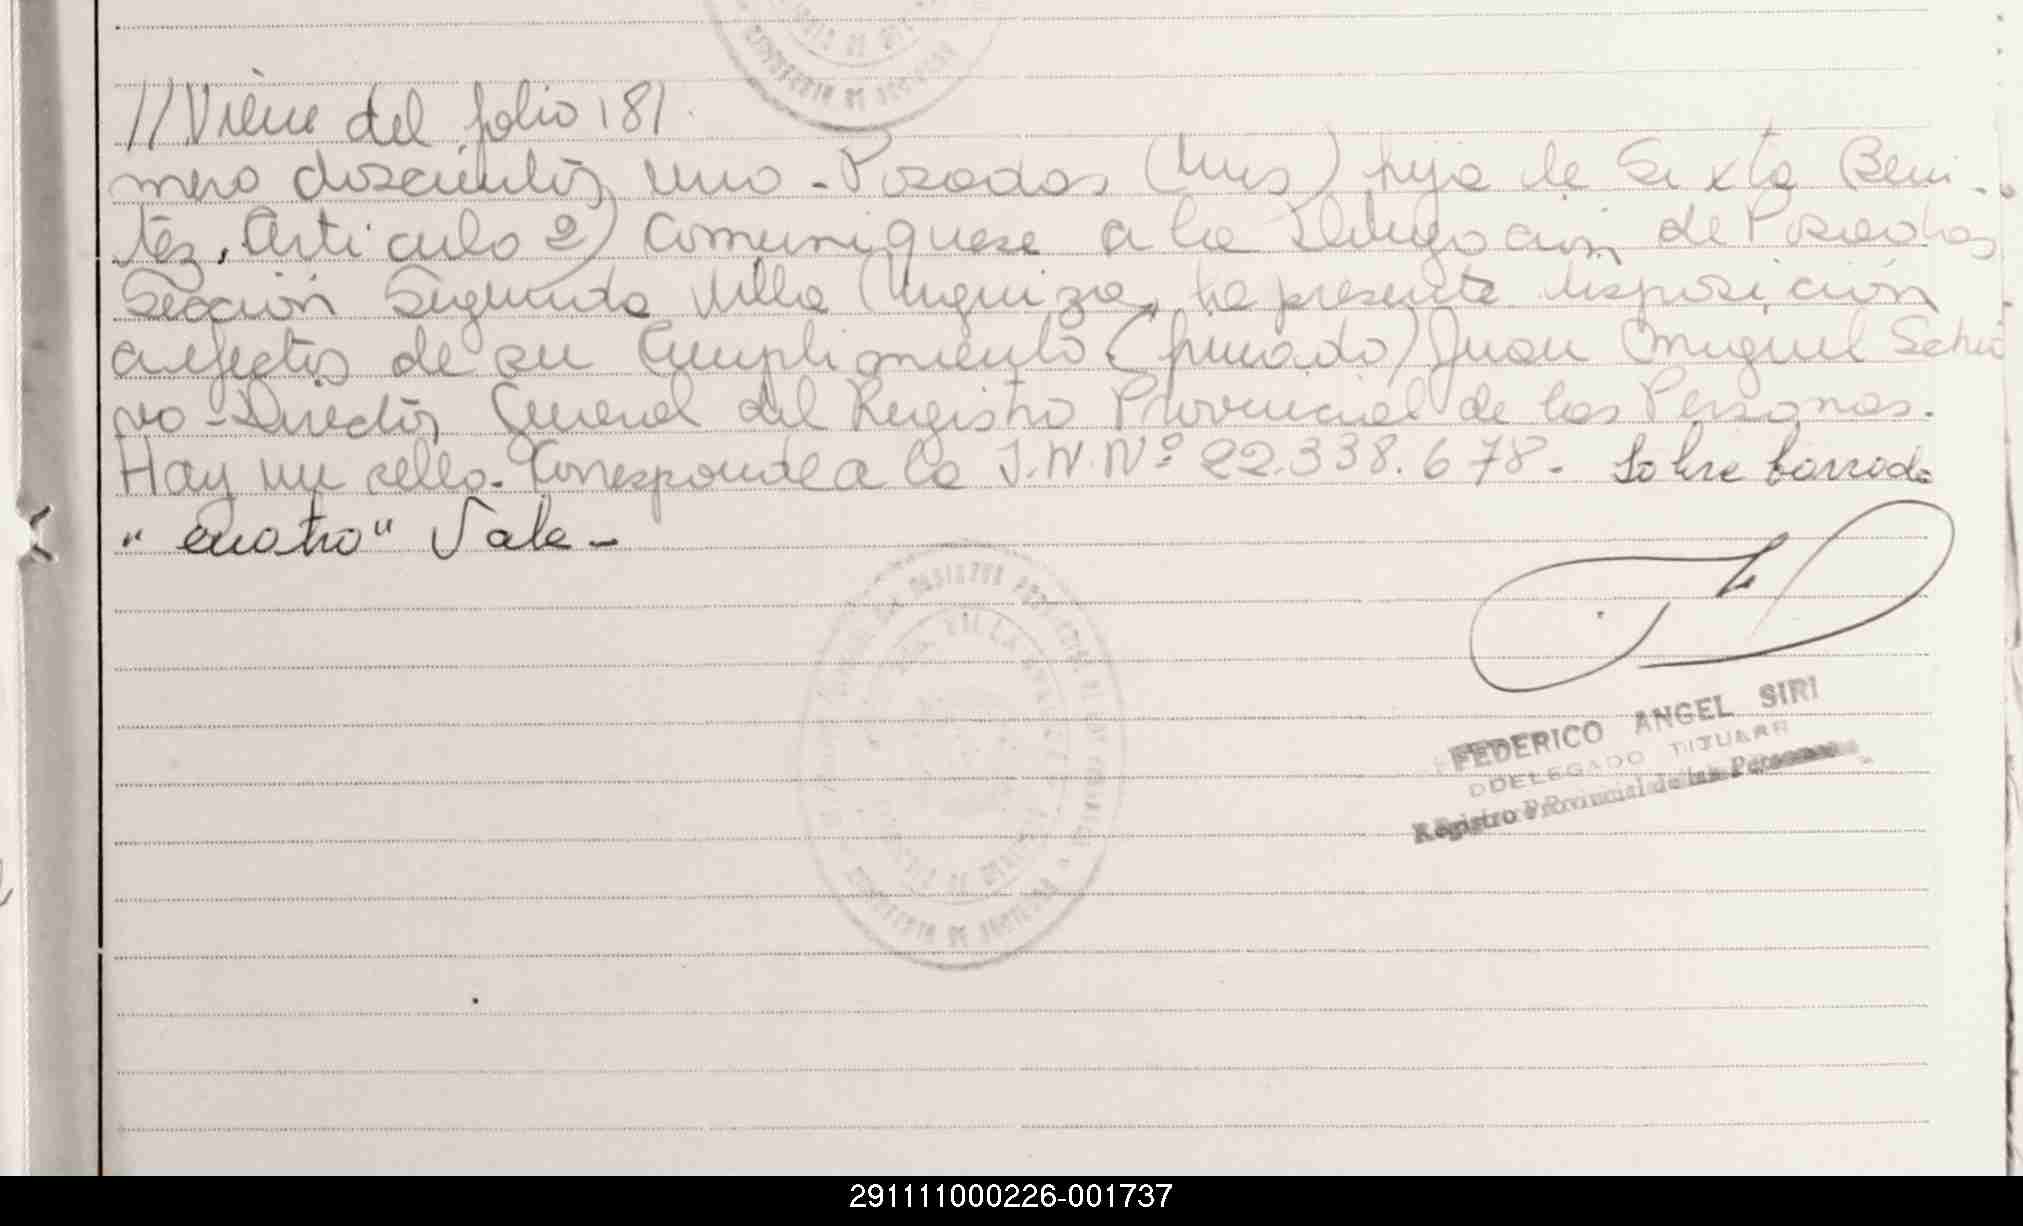 //Viene del folio 181.
mero doscientos uno - Posadas (Mns) hija de Sixta Beni-
tez, Articulo 2) Comuniquese a la Delegación de Posadas
Sección Segunda Villa Urquiza, la presente disposición
a efectos de su Cumplimiento. (firmado) Juan Miguel
Director General del Registro Provincial de las Personas.
Hay un sello. Corresponde a la I.N.Nº 22.338.678. Sobre borrado
"cuatro" Vale -
FEDERICO ANGEL SIRI
DELEGADO TITULAR
Registro Provincial de las Personas
291111000226-001737